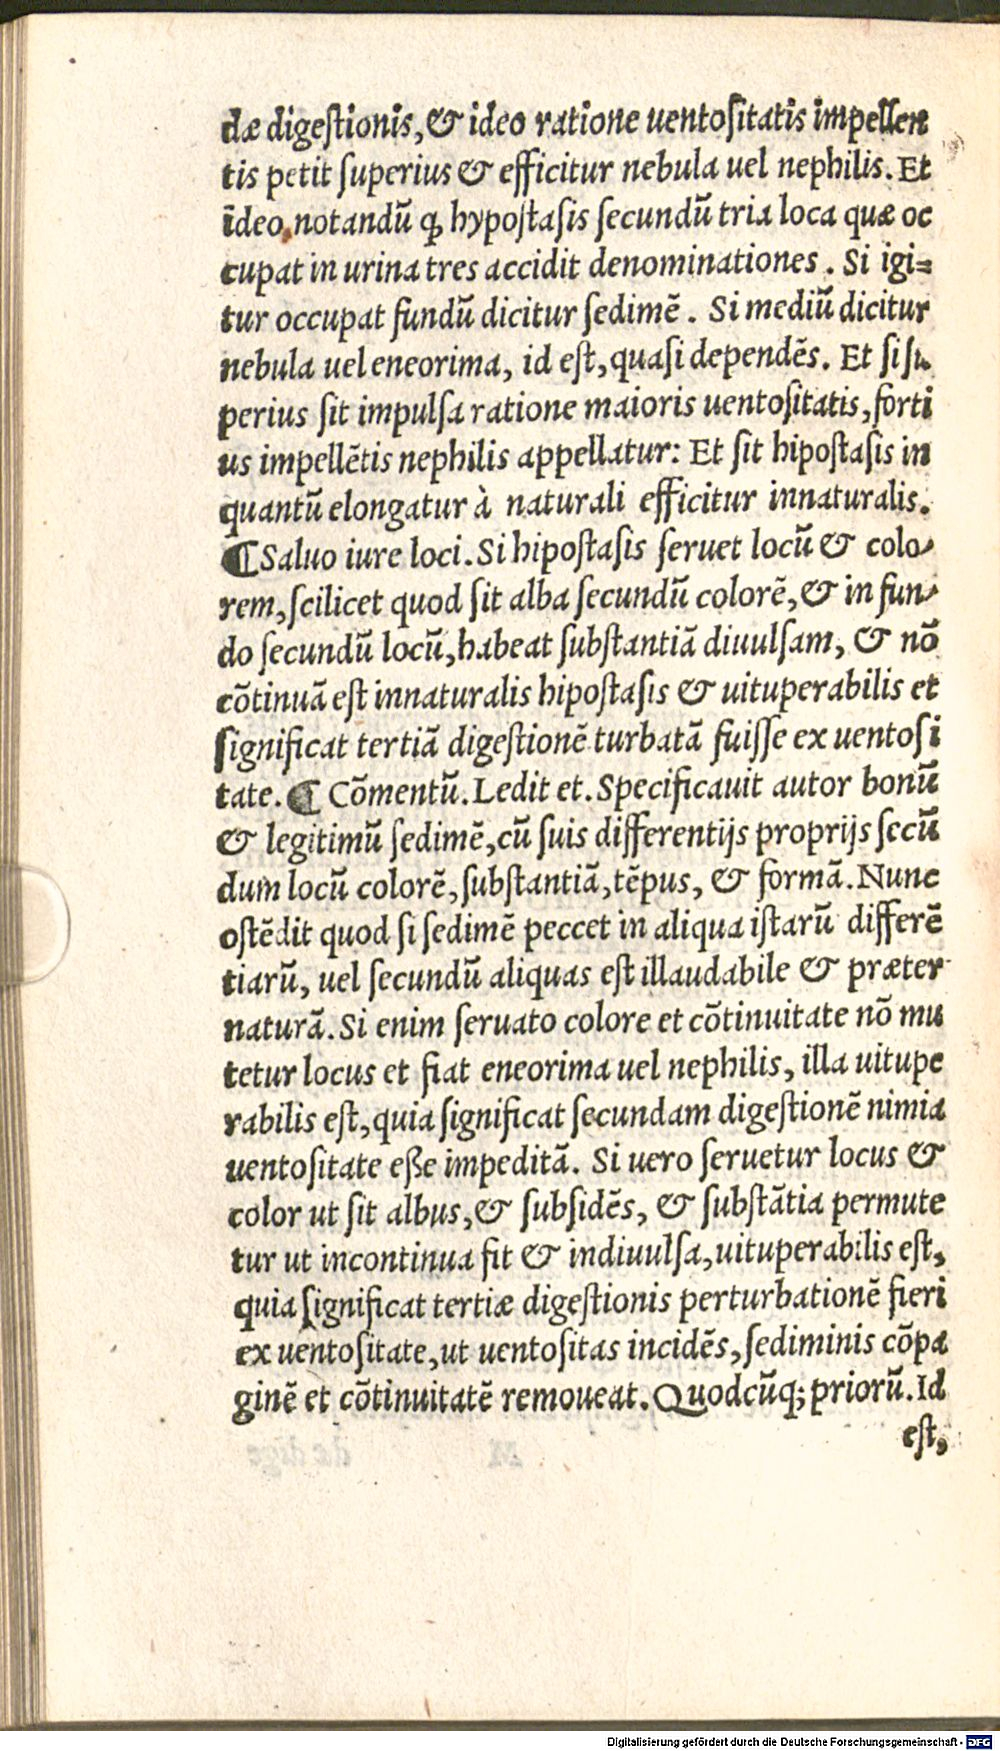 dæ digeſtionis,& ideo ratione uentoſitatis impellen
tis petit ſuperius & efficitur nebula uel nephilis. Et
ideo notandũ ꝙ hypoſtaſis ſecundũ tria loca quæ oc
cupat in urina tres accidit denominationes. Si igi=
tur occupat fundũ dicitur ſedimẽ. Si mediũ dicitur
nebula uel eneorima, id eſt, quaſi dependẽs. Et ſi ſu
perius ſit impulſa ratione maioris uentoſitatis, forti
us impellẽtis nephilis appellatur: Et ſit hipoſtaſis in
quantũ elongatur à naturali efficitur innaturalis.
¶ Saluo iure loci. Si hipoſtaſis ſeruet locũ & colo-
rem, ſcilicet quod ſit alba ſecundũ colorẽ, & in fun-
do ſecundũ locũ, habeat ſubſtantiã diuulſam, & nõ
cõtinuã eſt innaturalis hipoſtaſis & uituperabilis et
ſignificat tertiã digeſtionẽ turbatã fuiſſe ex uentoſi
tate. ¶ Cõmentũ. Ledit et. Specificauit autor bonũ
& legitimũ ſedimẽ, cũ ſuis differentijs proprijs ſecũ
dum locũ colorẽ, ſubſtantiã, tẽpus, & formã. Nunc
oſtẽdit quod ſi ſedimẽ peccet in aliqua iſtarũ differẽ
tiarũ, uel ſecundũ aliquas eſt illaudabile & præter
naturã. Si enim ſeruato colore et cõtinuitate nõ mu
tetur locus et fiat eneorima uel nephilis, illa uitupe
rabilis eſt, quia ſignificat ſecundam digeſtionẽ nimia
uentoſitate eße impeditã. Si uero ſeruetur locus &
color ut ſit albus, & ſubſidẽs, & ſubſtãtia permute
tur ut incontinua fit & indiuulſa, uituperabilis eſt,
quia ſignificat tertiæ digeſtionis perturbationẽ fieri
ex uentoſitate, ut uentoſitas incidẽs, ſediminis cõpa
ginẽ et cõtinuitatẽ remoueat. Quodcũq; priorũ. Id
eſt,
Digitalisierung gefördert durch die Deutsche Forschungsgemeinschaft - DFG